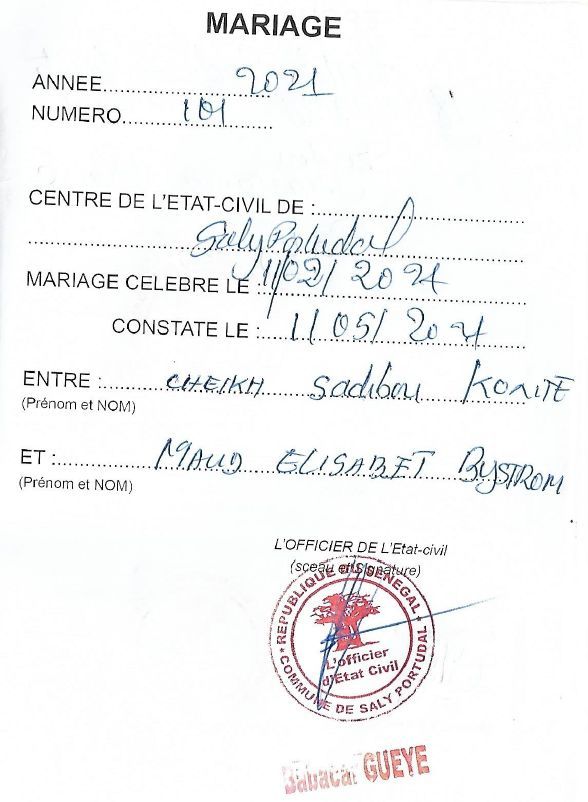 MARIAGE
ANNEE....................2021
NUMERO..........101..........
CENTRE DE L'ETAT-CIVIL DE :..............................
Saly Portudal
MARIAGE CELEBRE LE : 11/02/2021
CONSTATE LE : 11/05/2021
ENTRE : CHEIKH Sadibou KONITE
(Prénom et NOM)
ET : MAUD ELISABET BYSTROM
(Prénom et NOM)
L'OFFICIER DE L'Etat-civil
(sceau et Signature)
REPUBLIQUE DU SENEGAL
L'officier
d'Etat Civil
COMMUNE DE SALY PORTUDAL
Babacar GUEYE